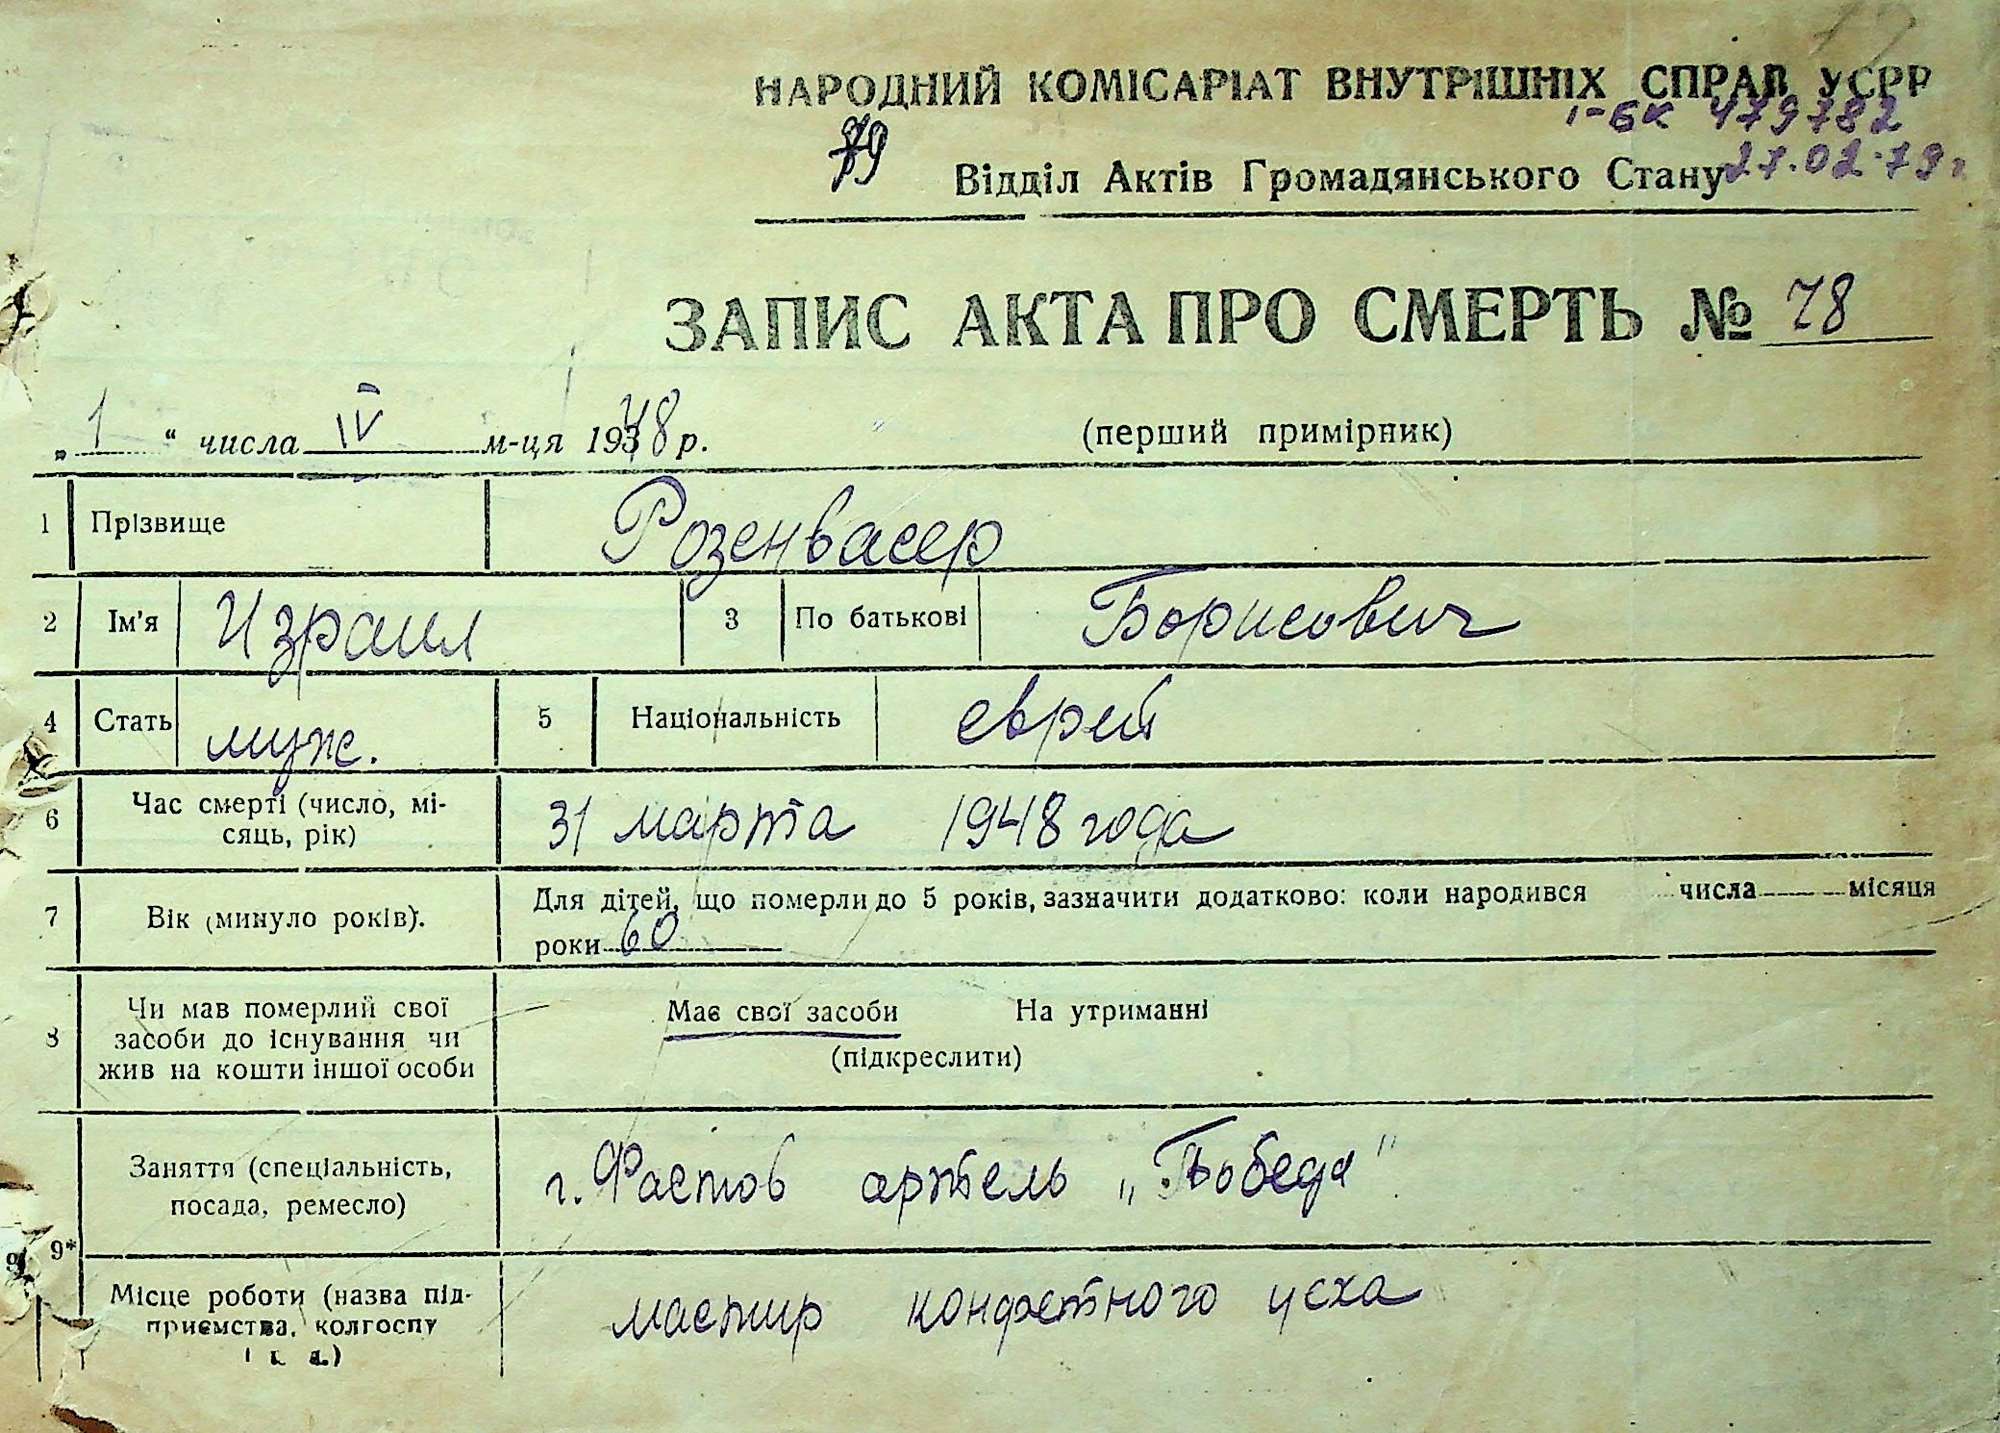 НАРОДНИЙ КОМІСАРІАТ ВНУТРІШНІХ СПРАВ УСРР
І-БК 479782
79 Відділ Актів Громадянського Стану 27.02.79г
ЗАПИС АКТА ПРО СМЕРТЬ № 78
„1“ числа IV м-ця 1948 р. (перший примірник)
1 Прізвище Розенвасер
2 Ім'я Израил 3 По батькові Борисович
4 Стать муж. 5 Національність еврей
6 Час смерті (число, мі-
сяць, рік) 31 марта 1948 года
7 Вік (минуло років). Для дітей, що померли до 5 років, зазначити додатково: коли народився числа місяця
роки 60
8 Чи мав померлий свої
засоби до існування чи
жив на кошти іншої особи
Має свої засоби На утриманні
(підкреслити)
Заняття (спеціальність,
посада, ремесло) г. Фастов артель „Победа"
9*
Місце роботи (назва під-
приємства, колгоспу
і т. д.) мастир конфетного цеха